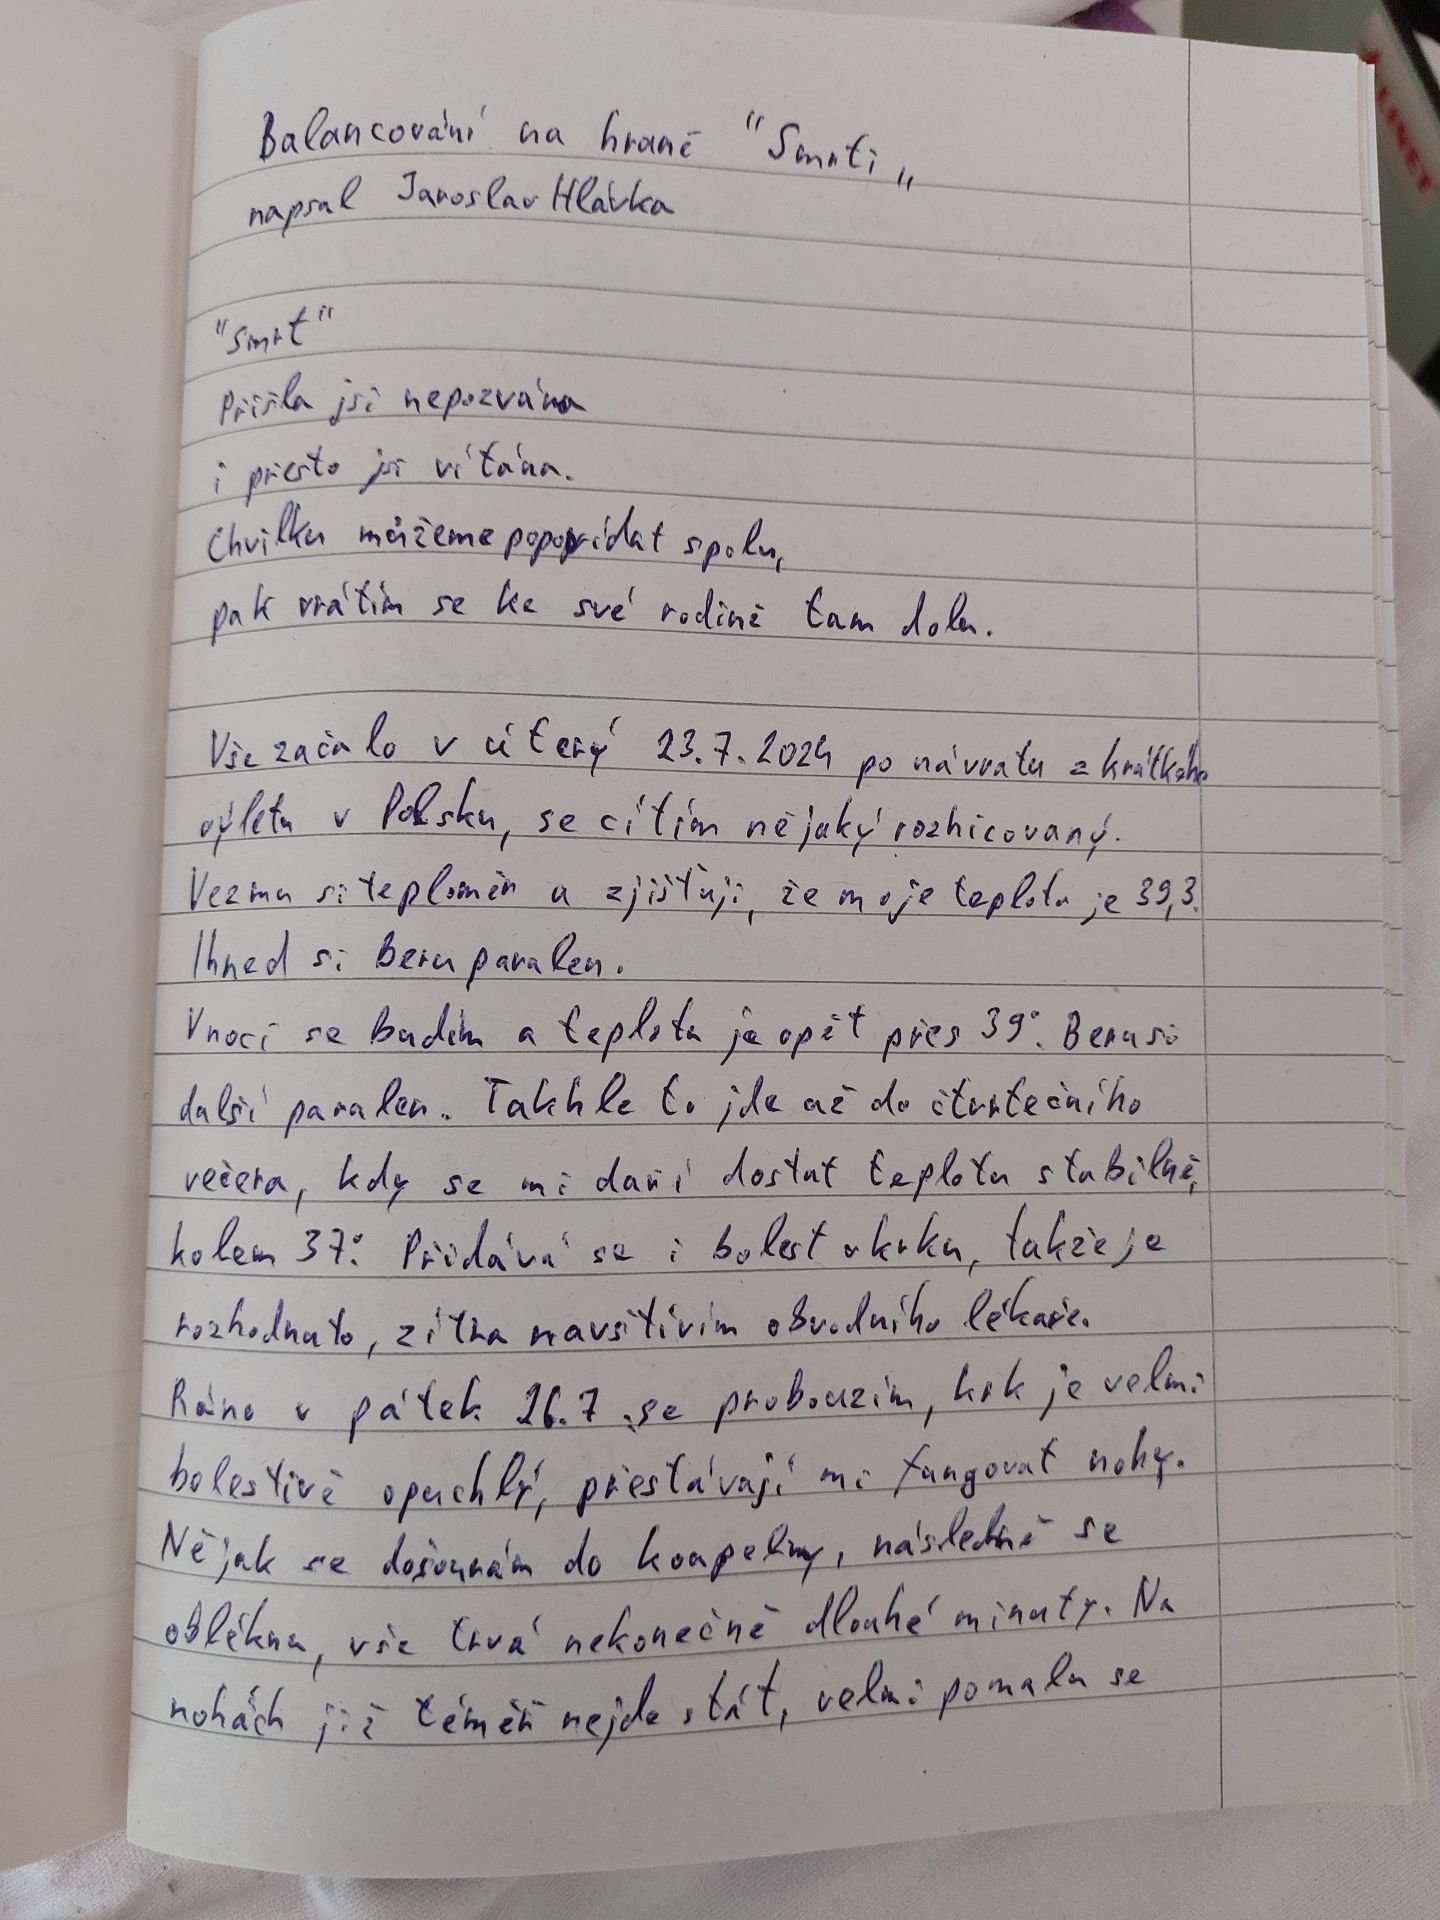 Balancování na hraně "Smrti„
napsal Jaroslav Hlávka
"Smrt"
Přišla jsi nepozvána
i přesto jsi vítána.
Chvilku můžeme popovídat spolu,
pak vrátím se ke své rodině tam dolu.
Vše začalo v úterý 23.7.2024 po návratu z krátkého
výletu v Polsku, se cítím nějaký rozhicovaný.
Vezmu si teploměr a zjišťuji, že moje teplota je 39,3.
Ihned si beru paralen.
V noci se budím a teplota je opět přes 39°. Beru si
další paralen. Takhle to jde až do čtvrtečního
večera, kdy se mi daří dostat teplotu stabilně,
kolem 37°. Přidává se i bolest v krku, takže je
rozhodnuto, zítra navštívím obvodního lékaře.
Ráno v pátek 26.7. se probouzím, krk je velmi
bolestivě opuchlý, přestávají mi fungovat nohy.
Nějak se došourám do koupelny, následně se
obléknu, vše trvá nekonečně dlouhé minuty. Na
nohách již téměř nejde stát, velmi pomalu se
LINET